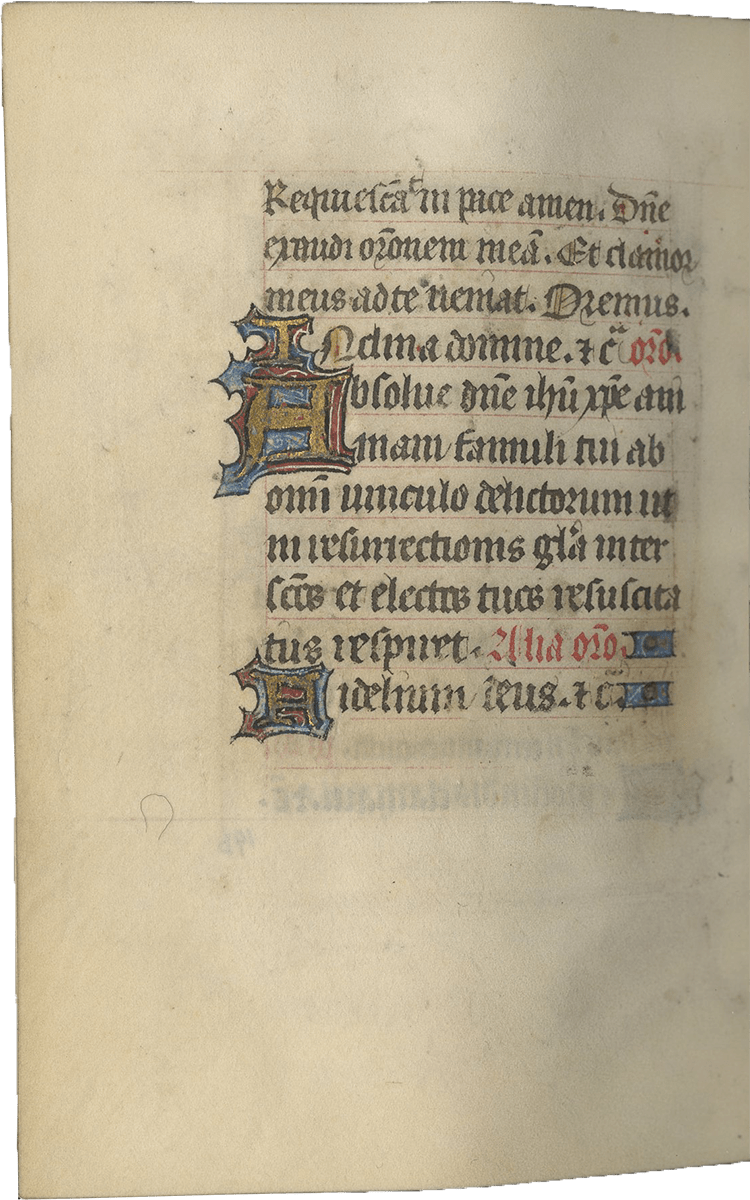 Requiescāt in pace amen. Dn̄e
exaudi orōnem meā. Et clamor
meus ad te ueniat. Oremus.
INclina domine. ⁊ cᵃ orō.
Absolue dn̄e ihū xp̄e ani
mam famuli tui ab
omī uinculo delictorum ut
in resurrectionis glīa inter
scōs et electos tuos resuscita
tus respiret. Alia orō.
Fidelium deus. ⁊ cᵃ.